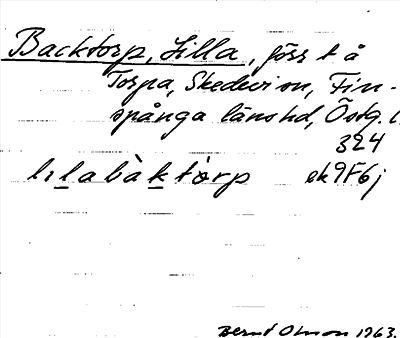 Backtorp, Lilla, förr t å
Torpa, Skedevi sn, Fin-
spånga länshd, Östg. l.
324
lılabàktòrp ek 9F6j
Bernt Olsson 1963.